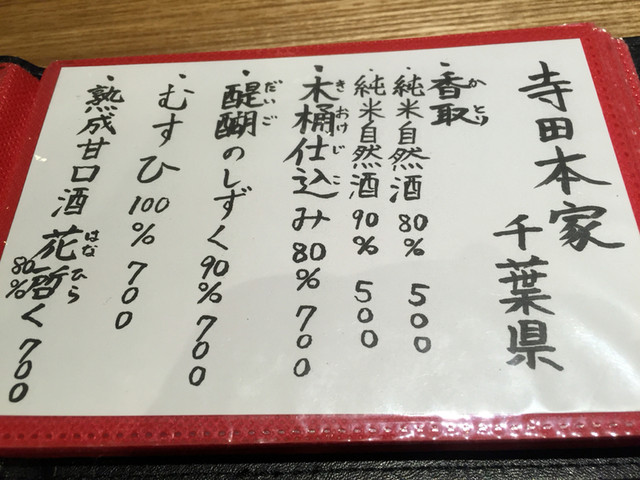 寺田本家
千葉県
・香取
かとり
・純米自然酒 80% 500
・純米自然酒 90% 500
・木桶仕込み 80% 700
きおけじこ
・醍醐のしずく 90% 700
だいご
・むすひ 100% 700
・熟成甘口酒 花啓く 80% 700
はなひら